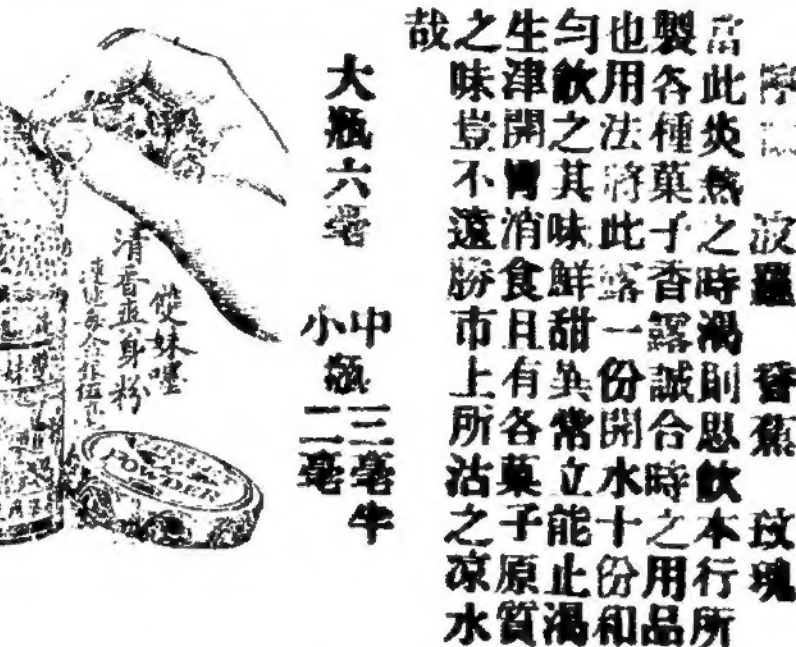 波羅 香蕉 玫瑰
當此炎熱之時渴則思飲本行所
製各種菓子香露誠合時之用品
也用法將此露一份開水十份和
勻飲之其味鮮甜異常立能止渴
生津開胃消食且有各菓子原質
之味豈不遠勝市上所沽之凉水
哉
大瓶六毫
中瓶三毫半
小瓶二毫
雙妹嚜
清香爽身粉
POWDER